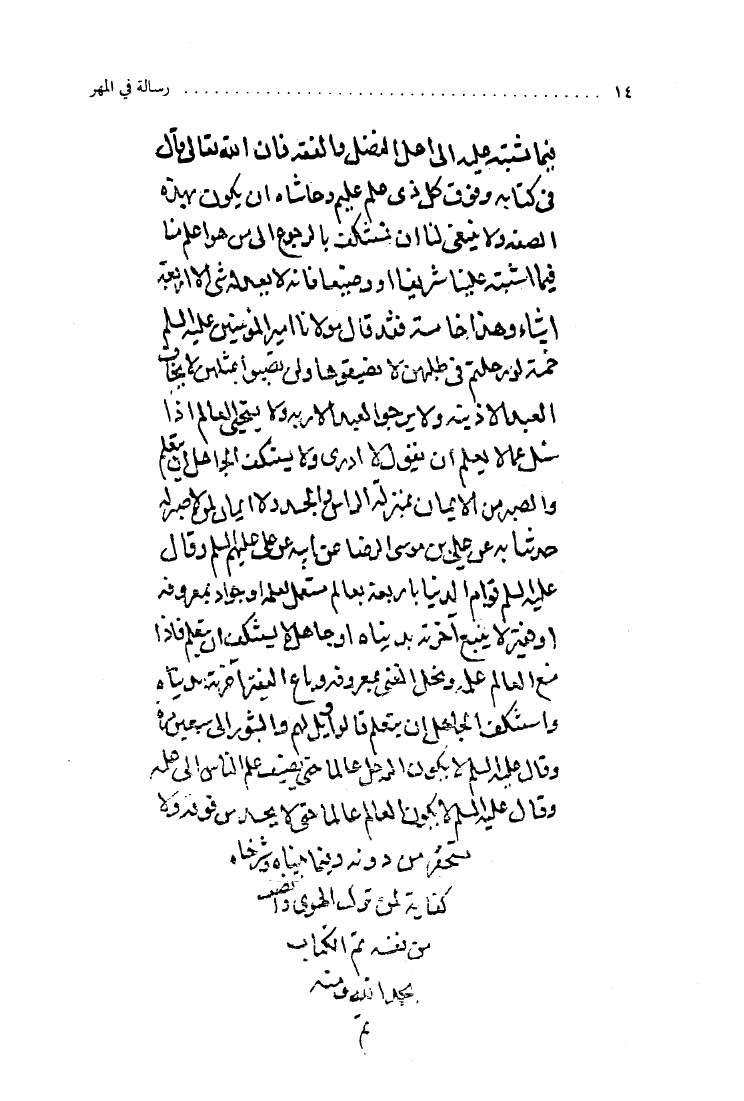 ١٤ ........................................ رسالة في المهر
فيما اشتبه عليه الى اهل الفضل والفقه فان الله تعالى قال
فى كتابه وفوق كل ذى علم عليم وحاشاه ان يكون بهذه
الصفه ولا ينبغى لنا ان نستنكف بالرجوع الى من هو اعلم منا
فيما اشتبه علينا شريفا او وضيعا فانه لا بعد لنا فى شى الا اربعة
اشياء وهذا خامسة فقد قال مولانا امير المؤمنين عليه السلم
خمسة لو رحلتم فى طلبهن لا تضيقوها ولن تصيبوا بمثلهن لا يخاف
العبد الا ذنبه ولا يرجوا العبد الا ربه ولا يستحيى العالم اذا
سئل عما لا يعلم ان يقول لا ادرى ولا يستنكف الجاهل ان يتعلم
والصبر من الايمان بمنزلة الراس من الجسد ولا ايمان لمن لا صبر له
حدثنا به عن على بن موسى الرضا عن ابيه عن على عليهم السلم وقال
عليه السلم قوام الدنيا باربعة بعالم مستعمل لعلمه او جواد بمعروفه
او فقير لا يبيع آخرته بدنياه او جاهل لا يستنكف ان يتعلم فاذا
منع العالم علمه وبخل الغنى بمعروفه وباع الفقير آخرته بدنياه
واستنكف الجاهل ان يتعلم قالويل لهم والثبور الى سبعين مرة
وقال عليه السلم لا يكون الرجل عالما حتى يضيف علم الناس الى علمه
وقال عليه السلم لا يكون العالم عالما حتى لا يحسد من فوقه ولا
يستحقر من دونه وفيما بيناه وشرحناه
كفاية لمن ترك الهوى وانصف
من نفسه تم الكتاب
بحمد الله ومنه
تم